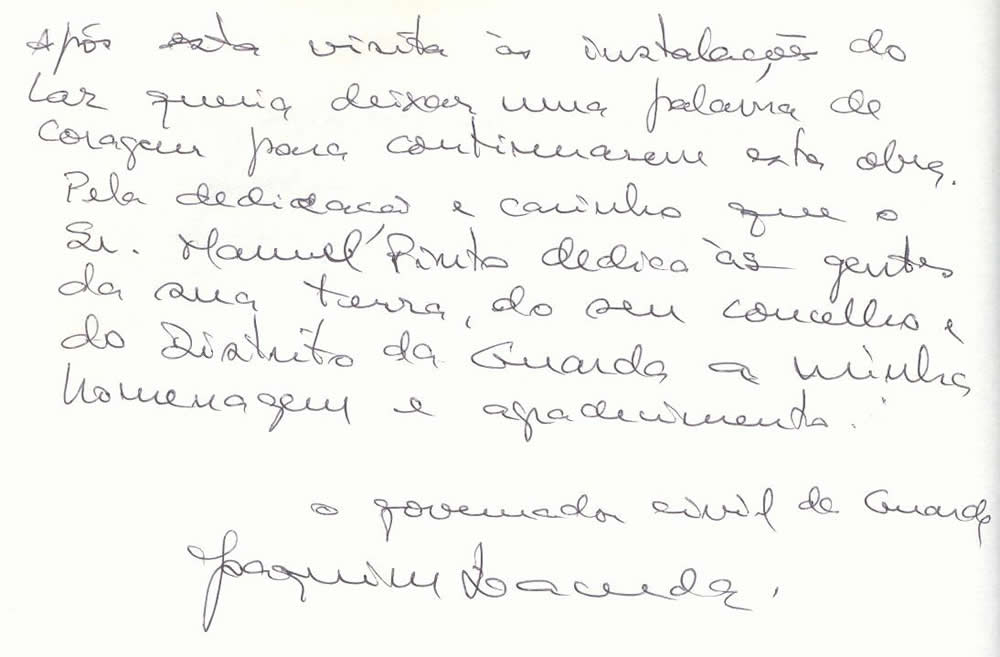 Após esta visita às instalações do
Lar queria deixar uma palavra de
coragem para continuarem esta obra.
Pela dedicação e carinho que o
Sr. Manuel Pinto dedica às gentes
da sua terra, do seu concelho e
do Distrito da Guarda a minha
homenagem e agradecimento.
o governador civil da Guarda
Joaquim Lacerda.